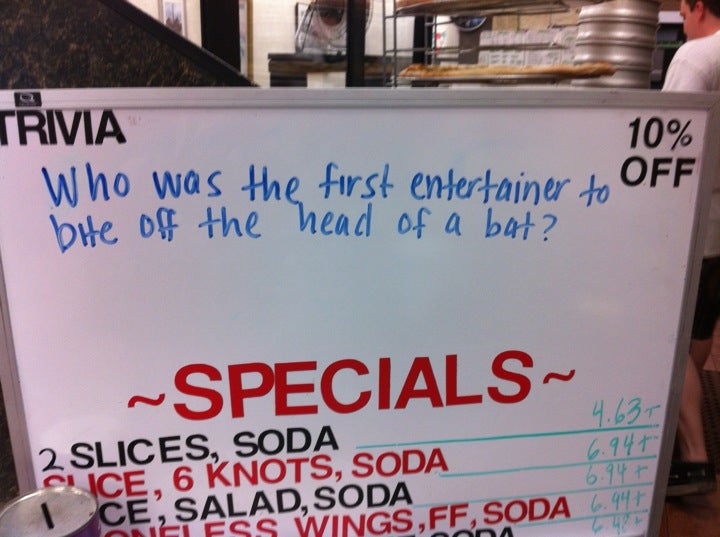 TRIVIA
10%
OFF
Who was the first entertainer to
bite off the head of a bat?
~SPECIALS~
2 SLICES, SODA 4.63+
SLICE, 6 KNOTS, SODA 6.94+
CE, SALAD, SODA 6.94+
ONELESS WINGS, FF, SODA 6.94+